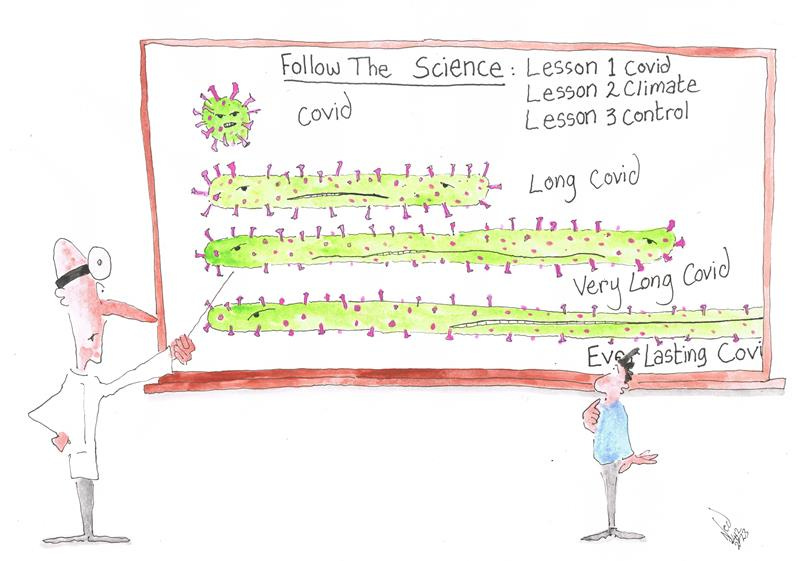 Follow The Science: Lesson 1 Covid
Lesson 2 Climate
Lesson 3 Control
Covid
Long Covid
Very Long Covid
Lasting Covi